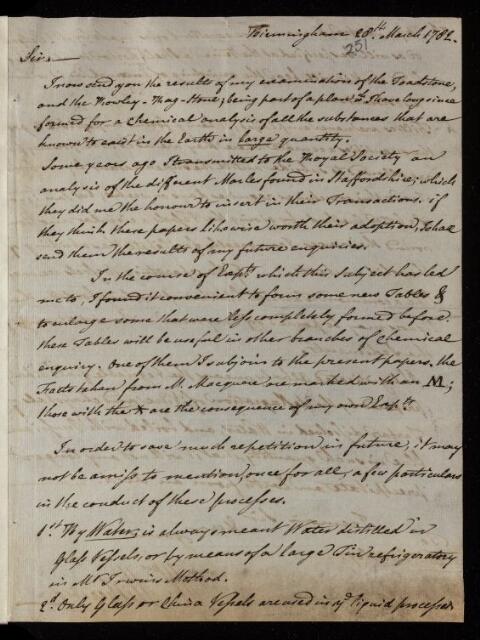 Birmingham 28th. March 1782.
251
Sir,
I now send you the results of my examination of the Toadstone,
and the Rowley-Rag-Stone; being part of a plan wch. I have long since
formed for a Chemical analysis of all the substances that are
known to exist in the Earth in large quantity.
Some years ago I transmitted to the Royal Society an
analysis of the different Marles found in Staffordshire; which
they did me the honour to insert in their Transactions. if
they think these papers likewise worth their adoption, I shall
send them the results of any future enquiries.
In the course of Expts. which this subject has led
me to, I found it convenient to form some new Tables &
to enlarge some that were less completely formed before.
these Tables will be useful in other branches of Chemical
enquiry. One of them I subjoin to the present papers. the
Facts taken from M. Macquer are marked with an M;
those with the are the consequence of my own Expts.
In order to save much repetition in future, it may
not be amiss to mention, once for all, a few particulars
in the conduct of these processes.
1st. By Water; is always meant Water distilled in
Glass Vessels, or by means of a large Tin refrigeratory
in Mr. Irwins Method.
2d. Only Glass or China Vessels are used in ye. liquid processes